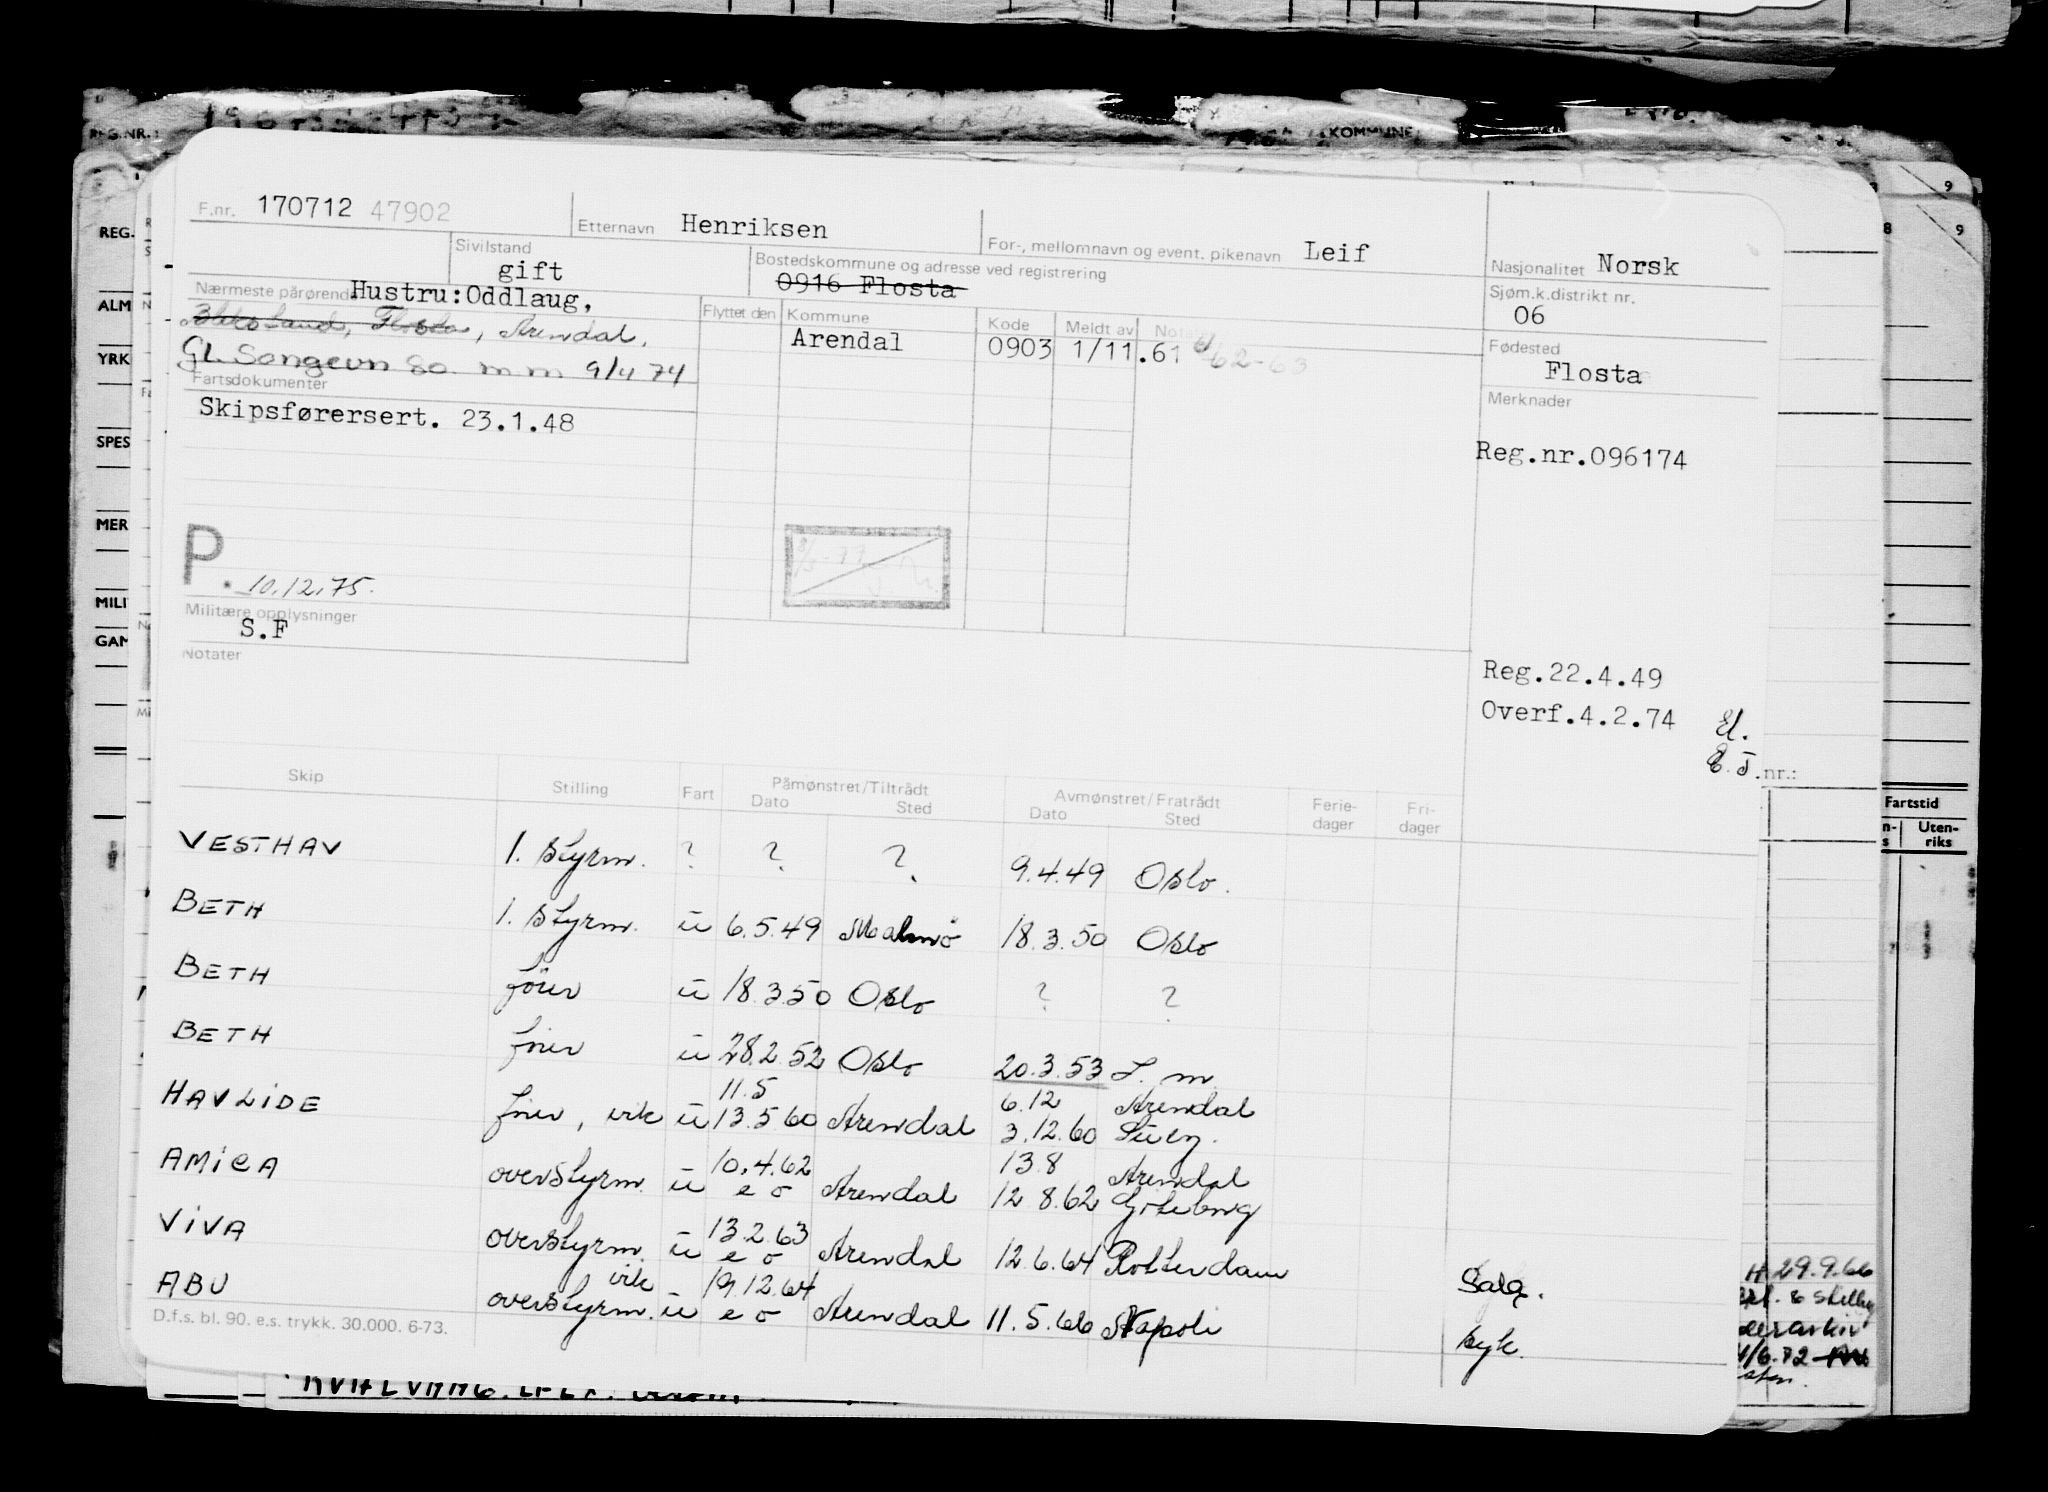 F.nr. 170712 47902
Etternavn Henriksen
For-, mellomnavn og event. pikenavn Leif
Nasjonalitet Norsk
Sivilstand
gift
Bostedskommune og adresse ved registrering
0916 Flosta
Sjøm.k.distrikt nr.
06
Nærmeste pårørende Hustru: Oddlaug,
Flosta, Arendal.
GL. Songevn 80 m m 9/4 74
Flyttet den Kommune Kode Meldt av Notater
Arendal 0903 1/11.61 62-63
Fødested
Flosta
Fartsdokumenter
Skipsførersert. 23.1.48
Merknader
Reg.nr.096174
P. 10.12.75.
Militære opplysninger
S.F
Notater
Reg.22.4.49
Overf.4.2.74 El.
E.J.
nr.:
Skip Stilling Fart Påmønstret/Tiltrådt Dato Sted Avmønstret/Fratrådt Dato Sted Ferie-dager Fri-dager
VESTHAV 1. styrm. ? ? ? 9.4.49 Oslo.
BETH 1. styrm. u 6.5.49 Malmö 18.3.50 Oslo
BETH förer u 18.3.50 Oslo ? ?
BETH förer u 28.2.52 Oslo 20.3.53 S. m.
11.5 6.12 Arendal
HAVLIDE förer, vik u 13.5.60 Arendal 3.12.60 Suez.
10.4.62 13.8 Arendal
AMICA overstyrm. u e o Arendal 12.8.62 Göteborg
13.2.63
VIVA overstyrm. u e o Arendal 12.6.64 Rotterdam Salg.
vik 19.12.64
ABU overstyrm. u e o Arendal 11.5.66 Napoli syk.
D.f.s. bl. 90. e.s. trykk. 30.000. 6-73.
REG.NR.:
KOMMUNE
REG.
ALM
YRK
SPES
MER
MILI
GAM
8 9
9
Fartstid
Uten-
riks
29.9.66